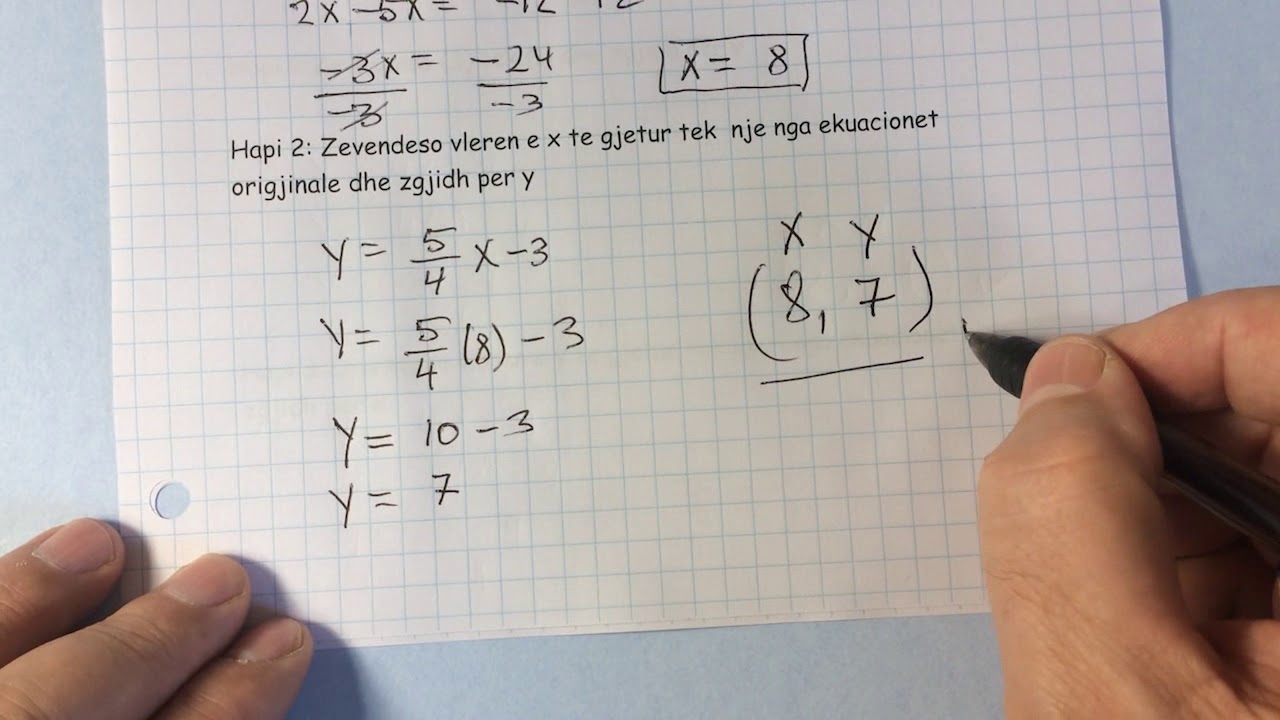 2x - 5x = -12
-3x = -24 x = 8
-3 -3
Hapi 2: Zevendeso vleren e x te gjetur tek nje nga ekuacionet
origjinale dhe zgjidh per y
y = 5/4 x - 3
y = 5/4 (8) - 3
y = 10 - 3
y = 7
x y
(8, 7)